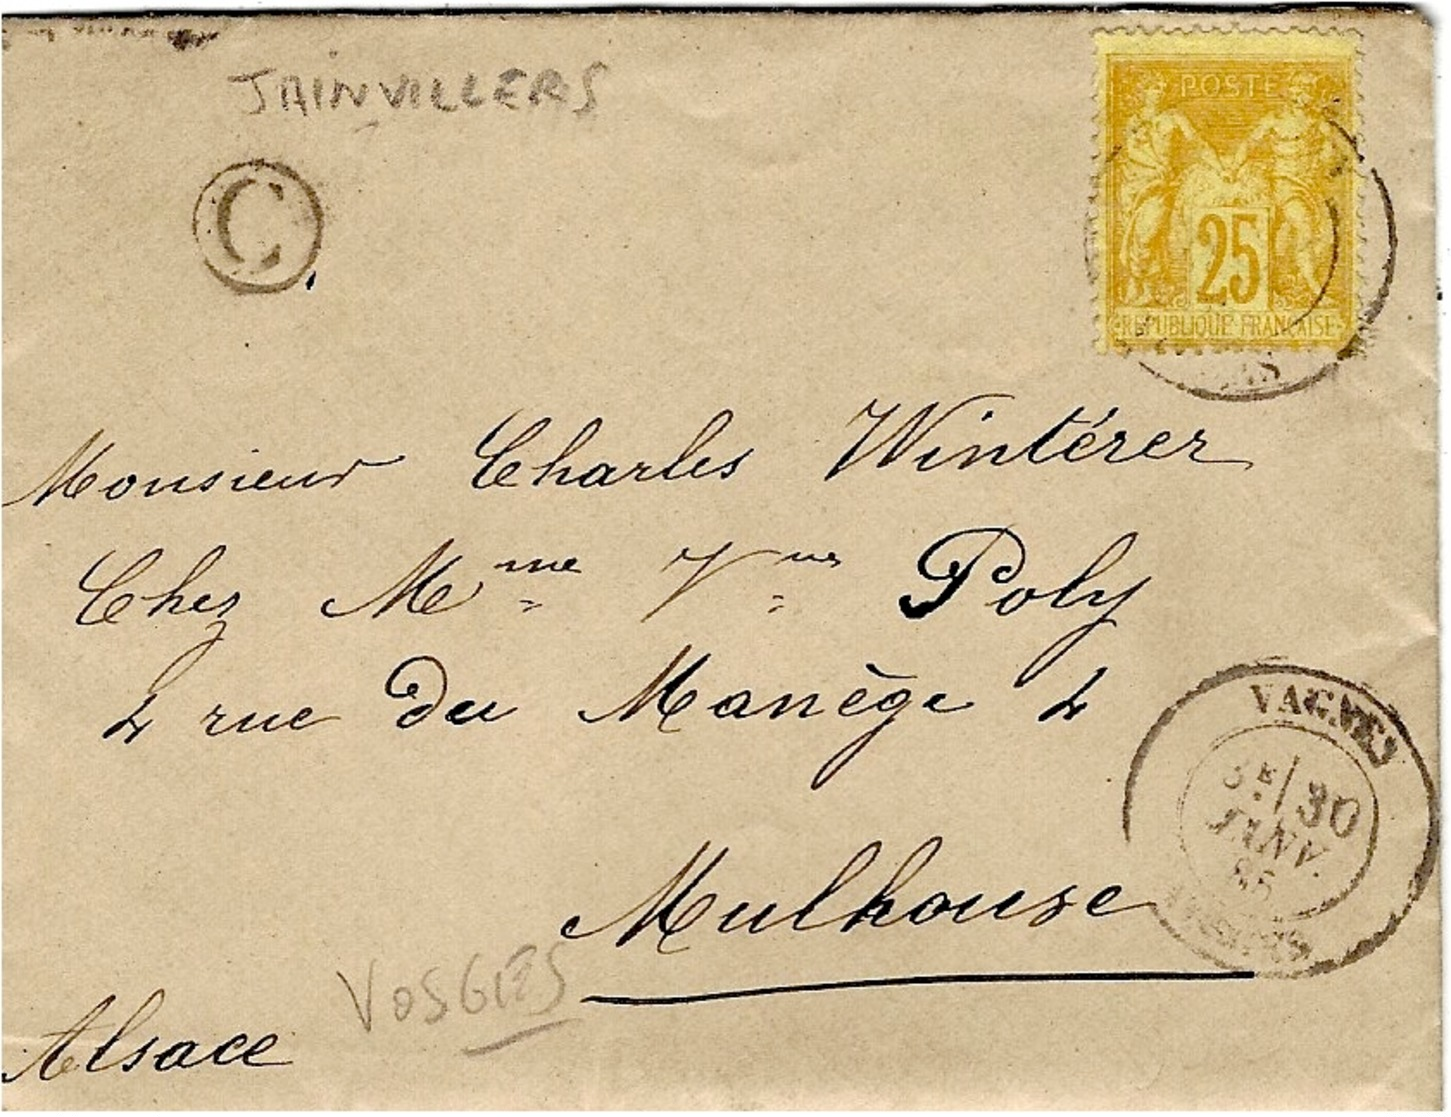 JAINVILLERS
C
POSTE
25
REPUBLIQUE FRANÇAISE
Monsieur Charles Wintérer
Chez Mme Vve Poly
4 rue du Manège 4
Mulhouse
Alsace
VOSGES
VAGNEY
3E / 30
JANV.
85
VOSGES